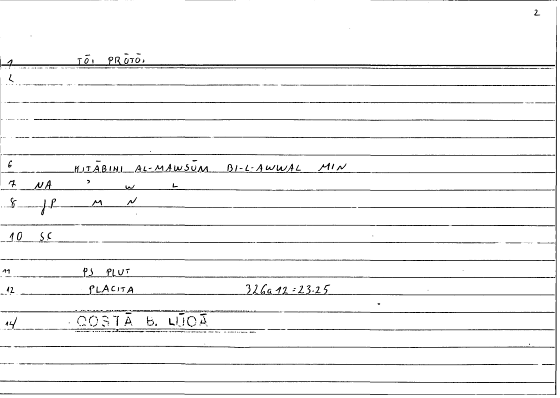 2
1 TŌI PRŌTŌI
2
6 KITĀBINI AL-MAWSŪM BI-L-AWWAL MIN
7 NA ' W L
8 JP M N
10 SC
11 PS PLUT
12 PLACITA 326a12=23.25
14/ QOSṬĀ b. LŪQĀ